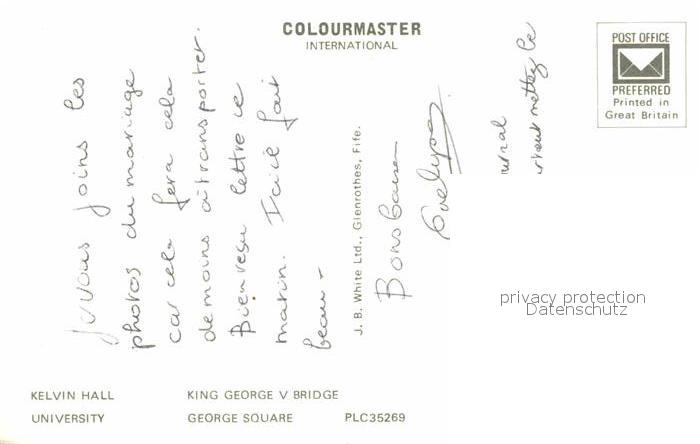 COLOURMASTER
INTERNATIONAL
POST OFFICE
PREFERRED
Printed in
Great Britain
Je vous joins les
photos du mariage
car cela fera cela
de moins à transporter.
Bien reçu lettre ce
matin. Ici il fait
beau -
J. B. White Ltd., Glenrothes, Fife.
Bons baisers
Evelyne
mettez le
privacy protection
Datenschutz
KELVIN HALL KING GEORGE V BRIDGE
UNIVERSITY GEORGE SQUARE PLC35269